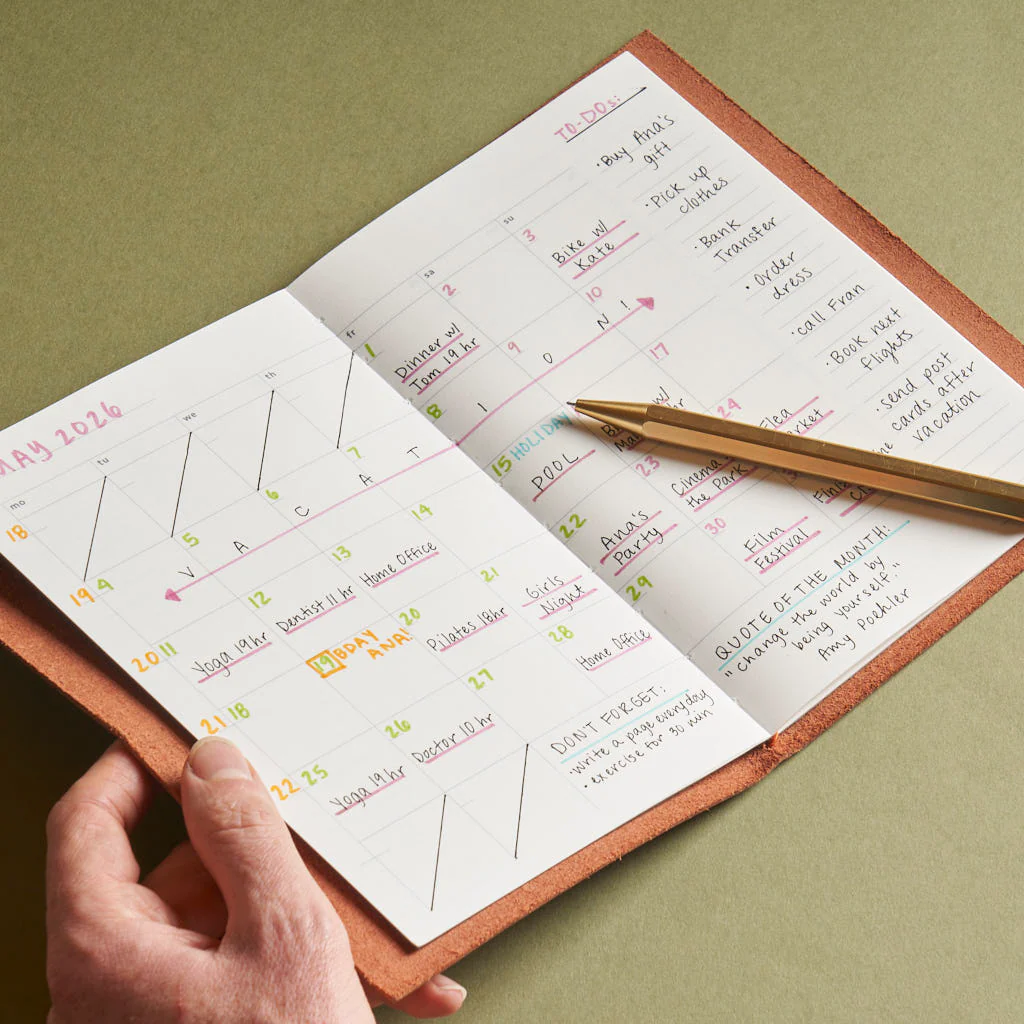 MAY 2026
mo
tu
we
th
fr
sa
su
18
1
Dinner w/
Tom 19 hr
2
3
Bike w/
Kate
19
4
5
6
7
8
9
10
V A C A T I O N !
20
11
Yoga 19hr
12
Dentist 11 hr
13
Home Office
14
15
HOLIDAY
POOL
w/
hr
17
21
18
19
BDAY
ANA!
20
Pilates 18hr
21
Girls
Night
22
Ana's
Party
23
Cinema
the Park
24
Flea
22
25
Yoga 19hr
26
Doctor 10 hr
27
28
Home Office
29
30
Film
Festival
DONT FORGET:
·write a page everyday
· exercise for 30 min
TO-DOs:
·Buy Ana's
gift
·Pick up
clothes
·Bank
Transfer
·Order
dress
·call Fran
·Book next
flights
·send post
cards after
vacation
QUOTE OF THE MONTH:
"Change the world by
being yourself."
Amy Poehler